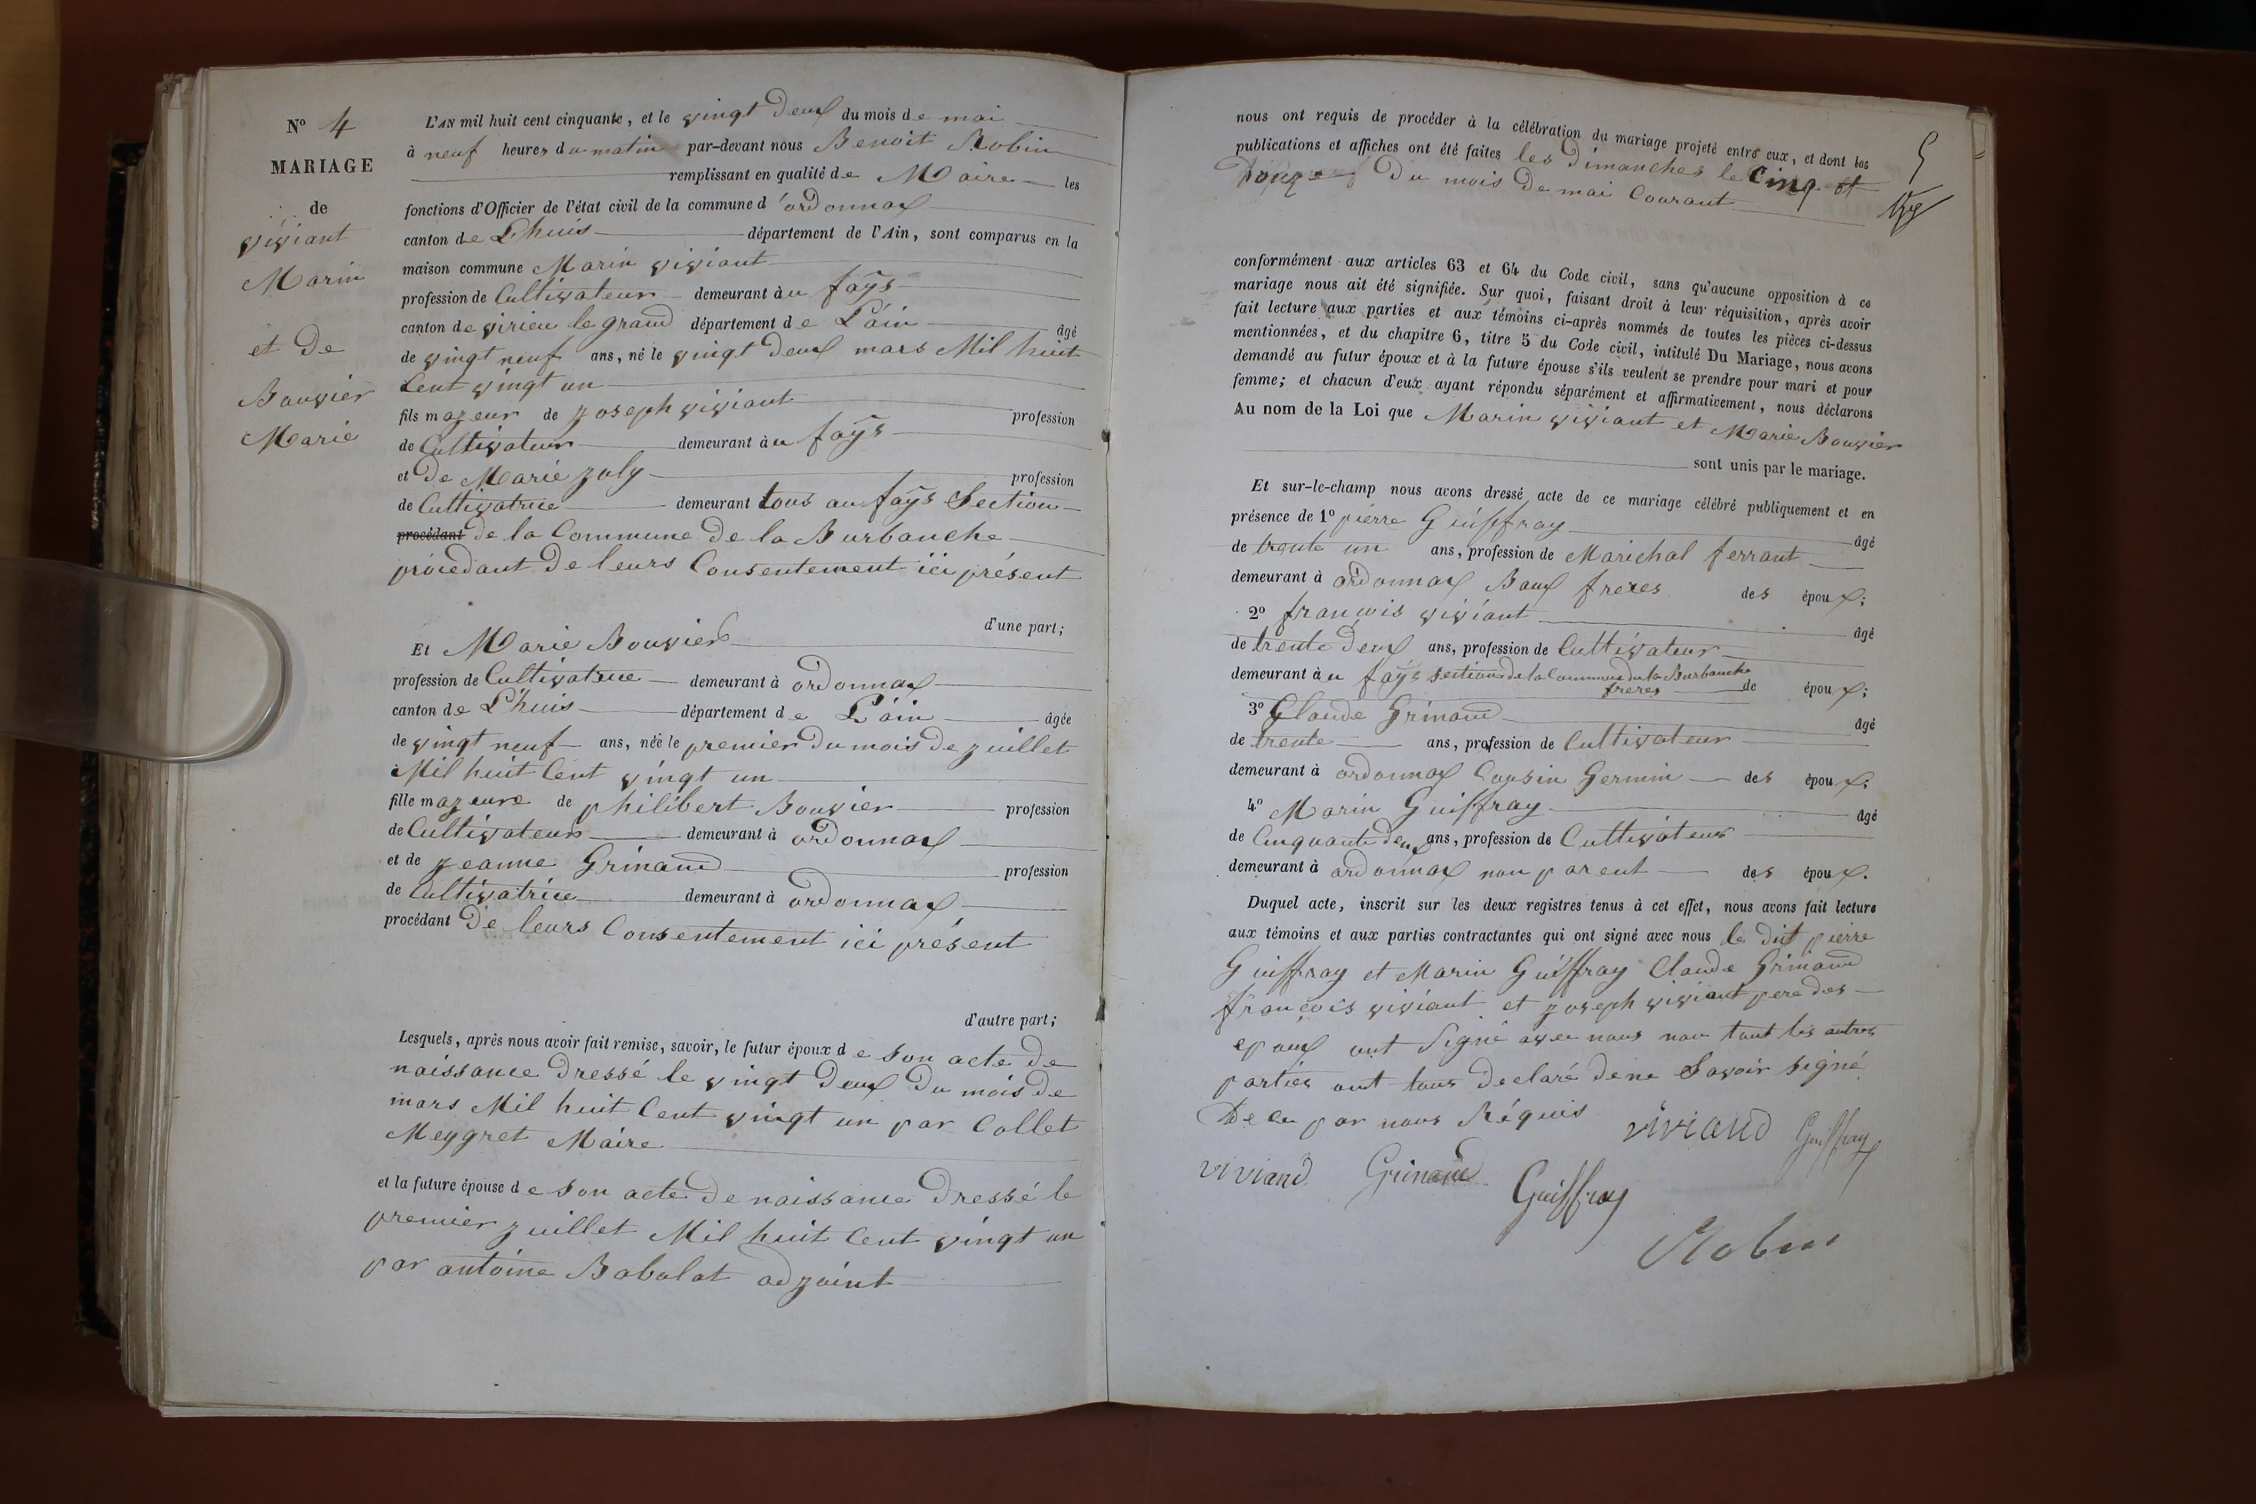 N° 4
MARIAGE
de
viviant
Marin
et de
Bouvier
Marie
L'AN mil huit cent cinquante, et le vingt deux du mois de mai
à neuf heures du matin par-devant nous Benoit Robin
remplissant en qualité de Maire les
fonctions d'Officier de l'état civil de la commune d'ordonnax
canton de L'huis département de l'Ain, sont comparus en la
maison commune Marin viviant
profession de Cultivateur demeurant à u faÿs
canton de virieu le grand département de L'ain âgé
de vingt neuf ans, né le vingt deux mars Mil huit
Cent vingt un
fils majeur de joseph viviant profession
de Cultivateur demeurant à u faÿs
et de Marie joly profession
de Cultivatrice demeurant tous au faÿs Section
procédant de la Commune de la Burbanche
procedant de leurs Consentement ici présent
d'une part;
Et Marie Bouvier
profession de Cultivatrice demeurant à ordonnax
canton de L'huis département de L'ain âgée
de vingt neuf ans, née le premier du mois de juillet
Mil huit Cent vingt un
fille majeure de philibert Bouvier profession
de Cultivateur demeurant à ordonnax
et de jeanne Grinand profession
de Cultivatrice demeurant à ordonnax
procédant de leurs Consentement ici présent
d'autre part;
Lesquels, après nous avoir fait remise, savoir, le futur époux de Son acte de
naissance dressé le vingt deux du mois de
mars Mil huit Cent vingt un par Collet
Meygret Maire
et la future épouse de Son acte de naissance dressé le
premier juillet Mil huit Cent vingt un
par antoine Babolat adjoint
nous ont requis de procéder à la célébration du mariage projeté entre eux, et dont les
publications et affiches ont été faites les dimanches le Cinq et
Douze du mois de mai Courant
conformément aux articles 63 et 64 du Code civil, sans qu'aucune opposition à ce
mariage nous ait été signifiée. Sur quoi, faisant droit à leur réquisition, après avoir
fait lecture aux parties et aux témoins ci-après nommés de toutes les pièces ci-dessus
mentionnées, et du chapitre 6, titre 5 du Code civil, intitulé Du Mariage, nous avons
demandé au futur époux et à la future épouse s'ils veulent se prendre pour mari et pour
femme; et chacun d'eux ayant répondu séparément et affirmativement, nous déclarons
Au nom de la Loi que Marin viviant et Marie Bouvier
sont unis par le mariage.
Et sur-le-champ nous avons dressé acte de ce mariage célébré publiquement et en
présence de 1° pierre Guiffray âgé
de trente un ans, profession de Marichal ferrant
demeurant à ordonnax Baux freres des époux;
2° françois viviant âgé
de trente deux ans, profession de Cultivateur
demeurant à u faÿs Section de la Commune de la Burbanche
freres de époux;
3° Claude Grinand âgé
de trente ans, profession de Cultivateur
demeurant à ordonnax Cousin Germin des époux;
4° Marin Guiffray âgé
de Cinquante deux ans, profession de Cultivateur
demeurant à ordonnax non parent des époux.
Duquel acte, inscrit sur les deux registres tenus à cet effet, nous avons fait lecture
aux témoins et aux parties contractantes qui ont signé avec nous le dit pierre
Guiffray et Marin Guiffray Claude Grinand
françois viviant et joseph viviant pere des
epoux ont Signé avec nous non tant les autres
parties ont tous declaré de ne Savoir signé
de ce par nous Réquis
viviand Guiffray
viviand Grinand Guiffray
Robin